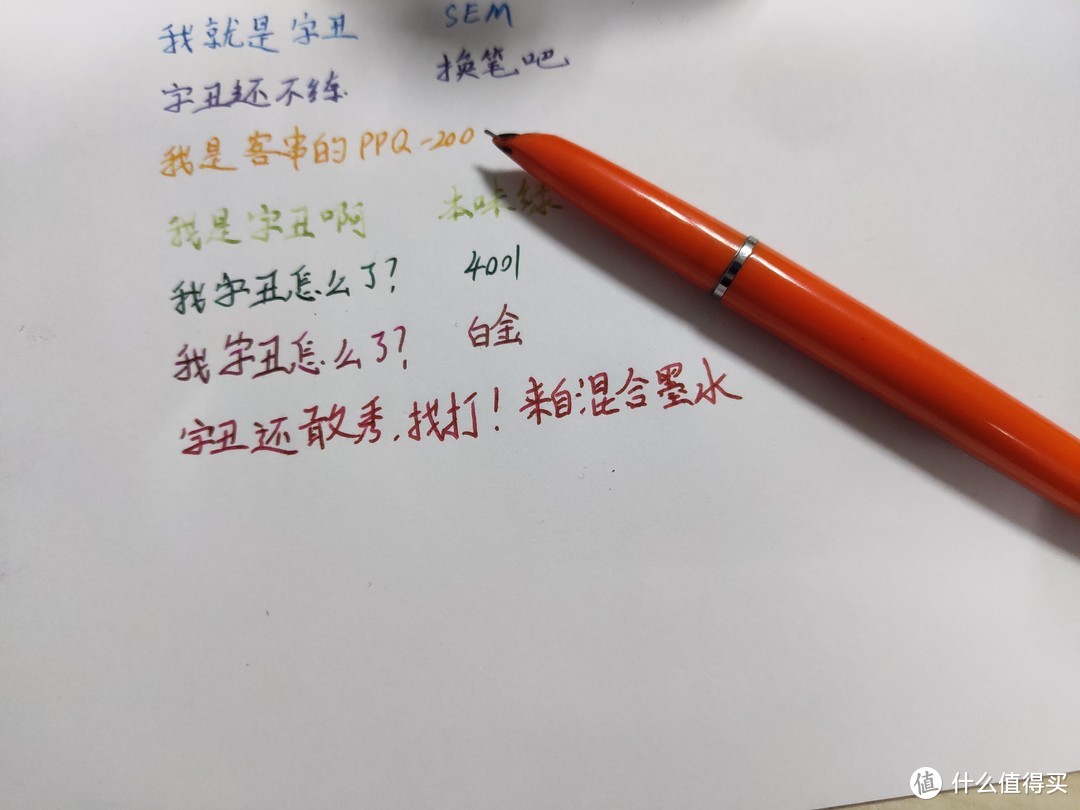 我就是字丑 SEM
字丑还不练 换笔吧
我是客串的PPQ-200
我是字丑啊 本味绿
我字丑怎么了? 4001
我字丑怎么了? 白金
字丑还敢秀,找打!来自混合墨水
值 什么值得买